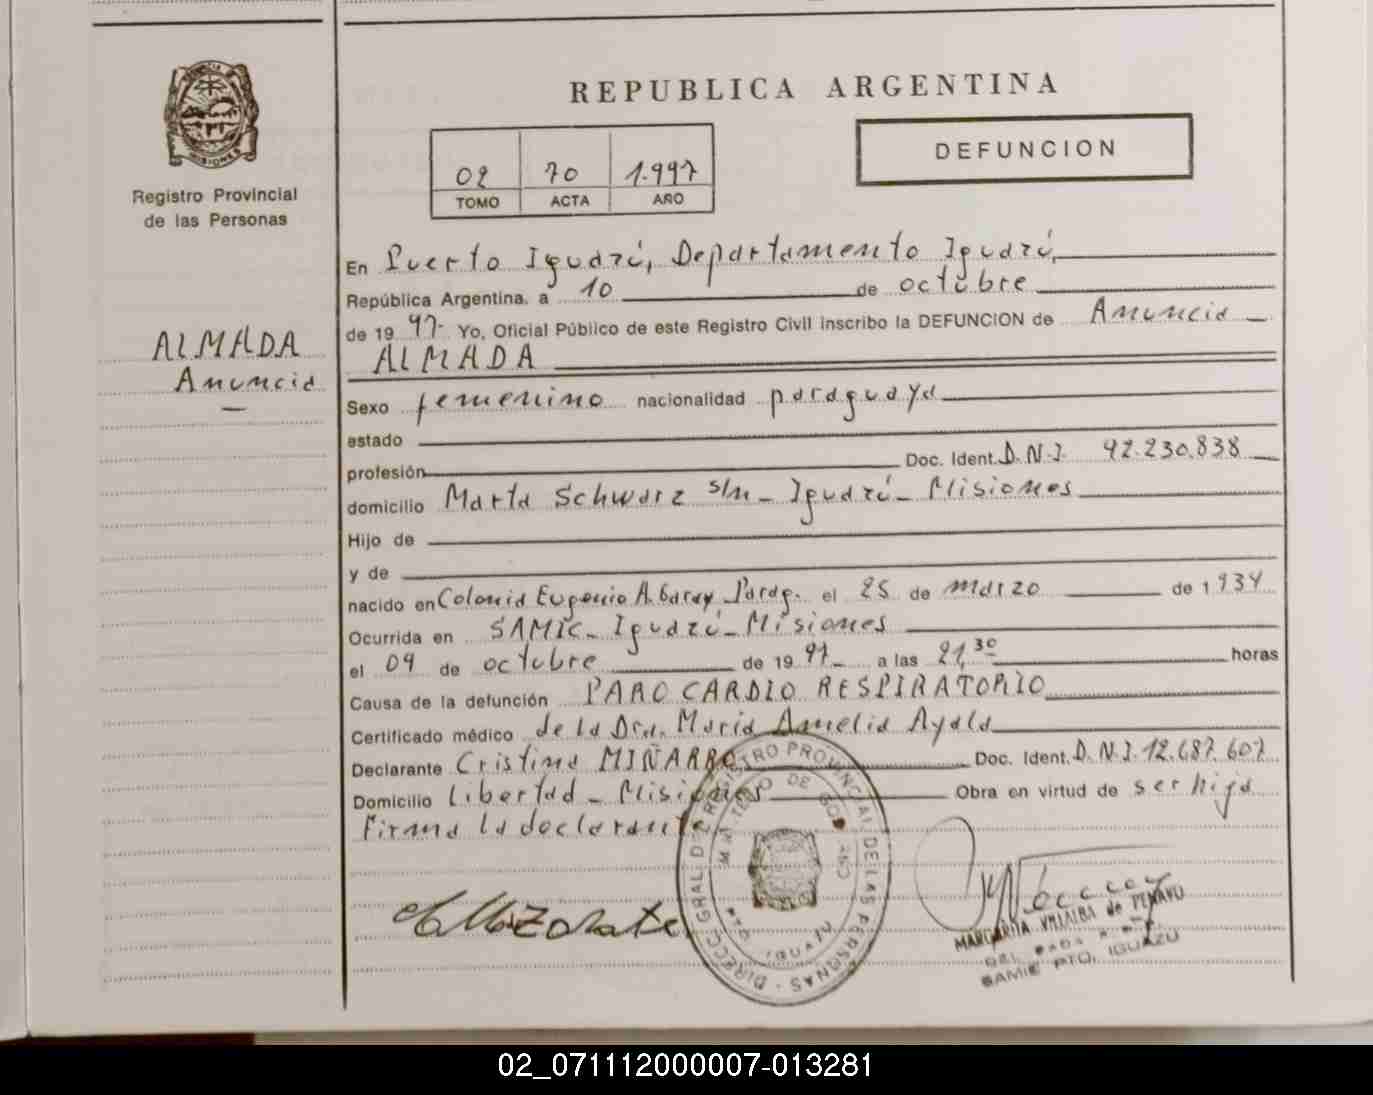 PROVINCIA DE
MISIONES
Registro Provincial
de las Personas
ALMADA
Anuncia
REPUBLICA ARGENTINA
DEFUNCION
02 70 1.997
TOMO ACTA AÑO
En Puerto Iguazú, Departamento Iguazú,
República Argentina, a 10 de octubre
de 19 97- Yo, Oficial Público de este Registro Civil inscribo la DEFUNCION de Anuncia
ALMADA
Sexo femenino nacionalidad paraguaya
estado
profesión Doc. Ident. D.N.I. 92.230.838
domicilio Marta Schwarz s/n - Iguazú - Misiones
Hijo de
y de
nacido en Colonia Eugenio A. Garay Parag. el 25 de marzo de 1934
Ocurrida en SAMIC - Iguazú - Misiones
el 09 de octubre de 19 97 a las 21,30 horas
Causa de la defunción PARO CARDIO RESPIRATORIO
Certificado médico de la Dra. Maria Amelia Ayala
Declarante Cristina MIÑARRO Doc. Ident. D.N.I. 12.687.607
Domicilio Libertad - Misiones Obra en virtud de ser hija
Firma la declarante
DIRECC. GRAL. DE REGISTRO PROVINCIAL DE LAS PERSONAS
MINISTERIO DE GOB
PTO. IGUAZU
MARGARITA VILLALBA de
SAMIC PTO. IGUAZU
02_071112000007-013281